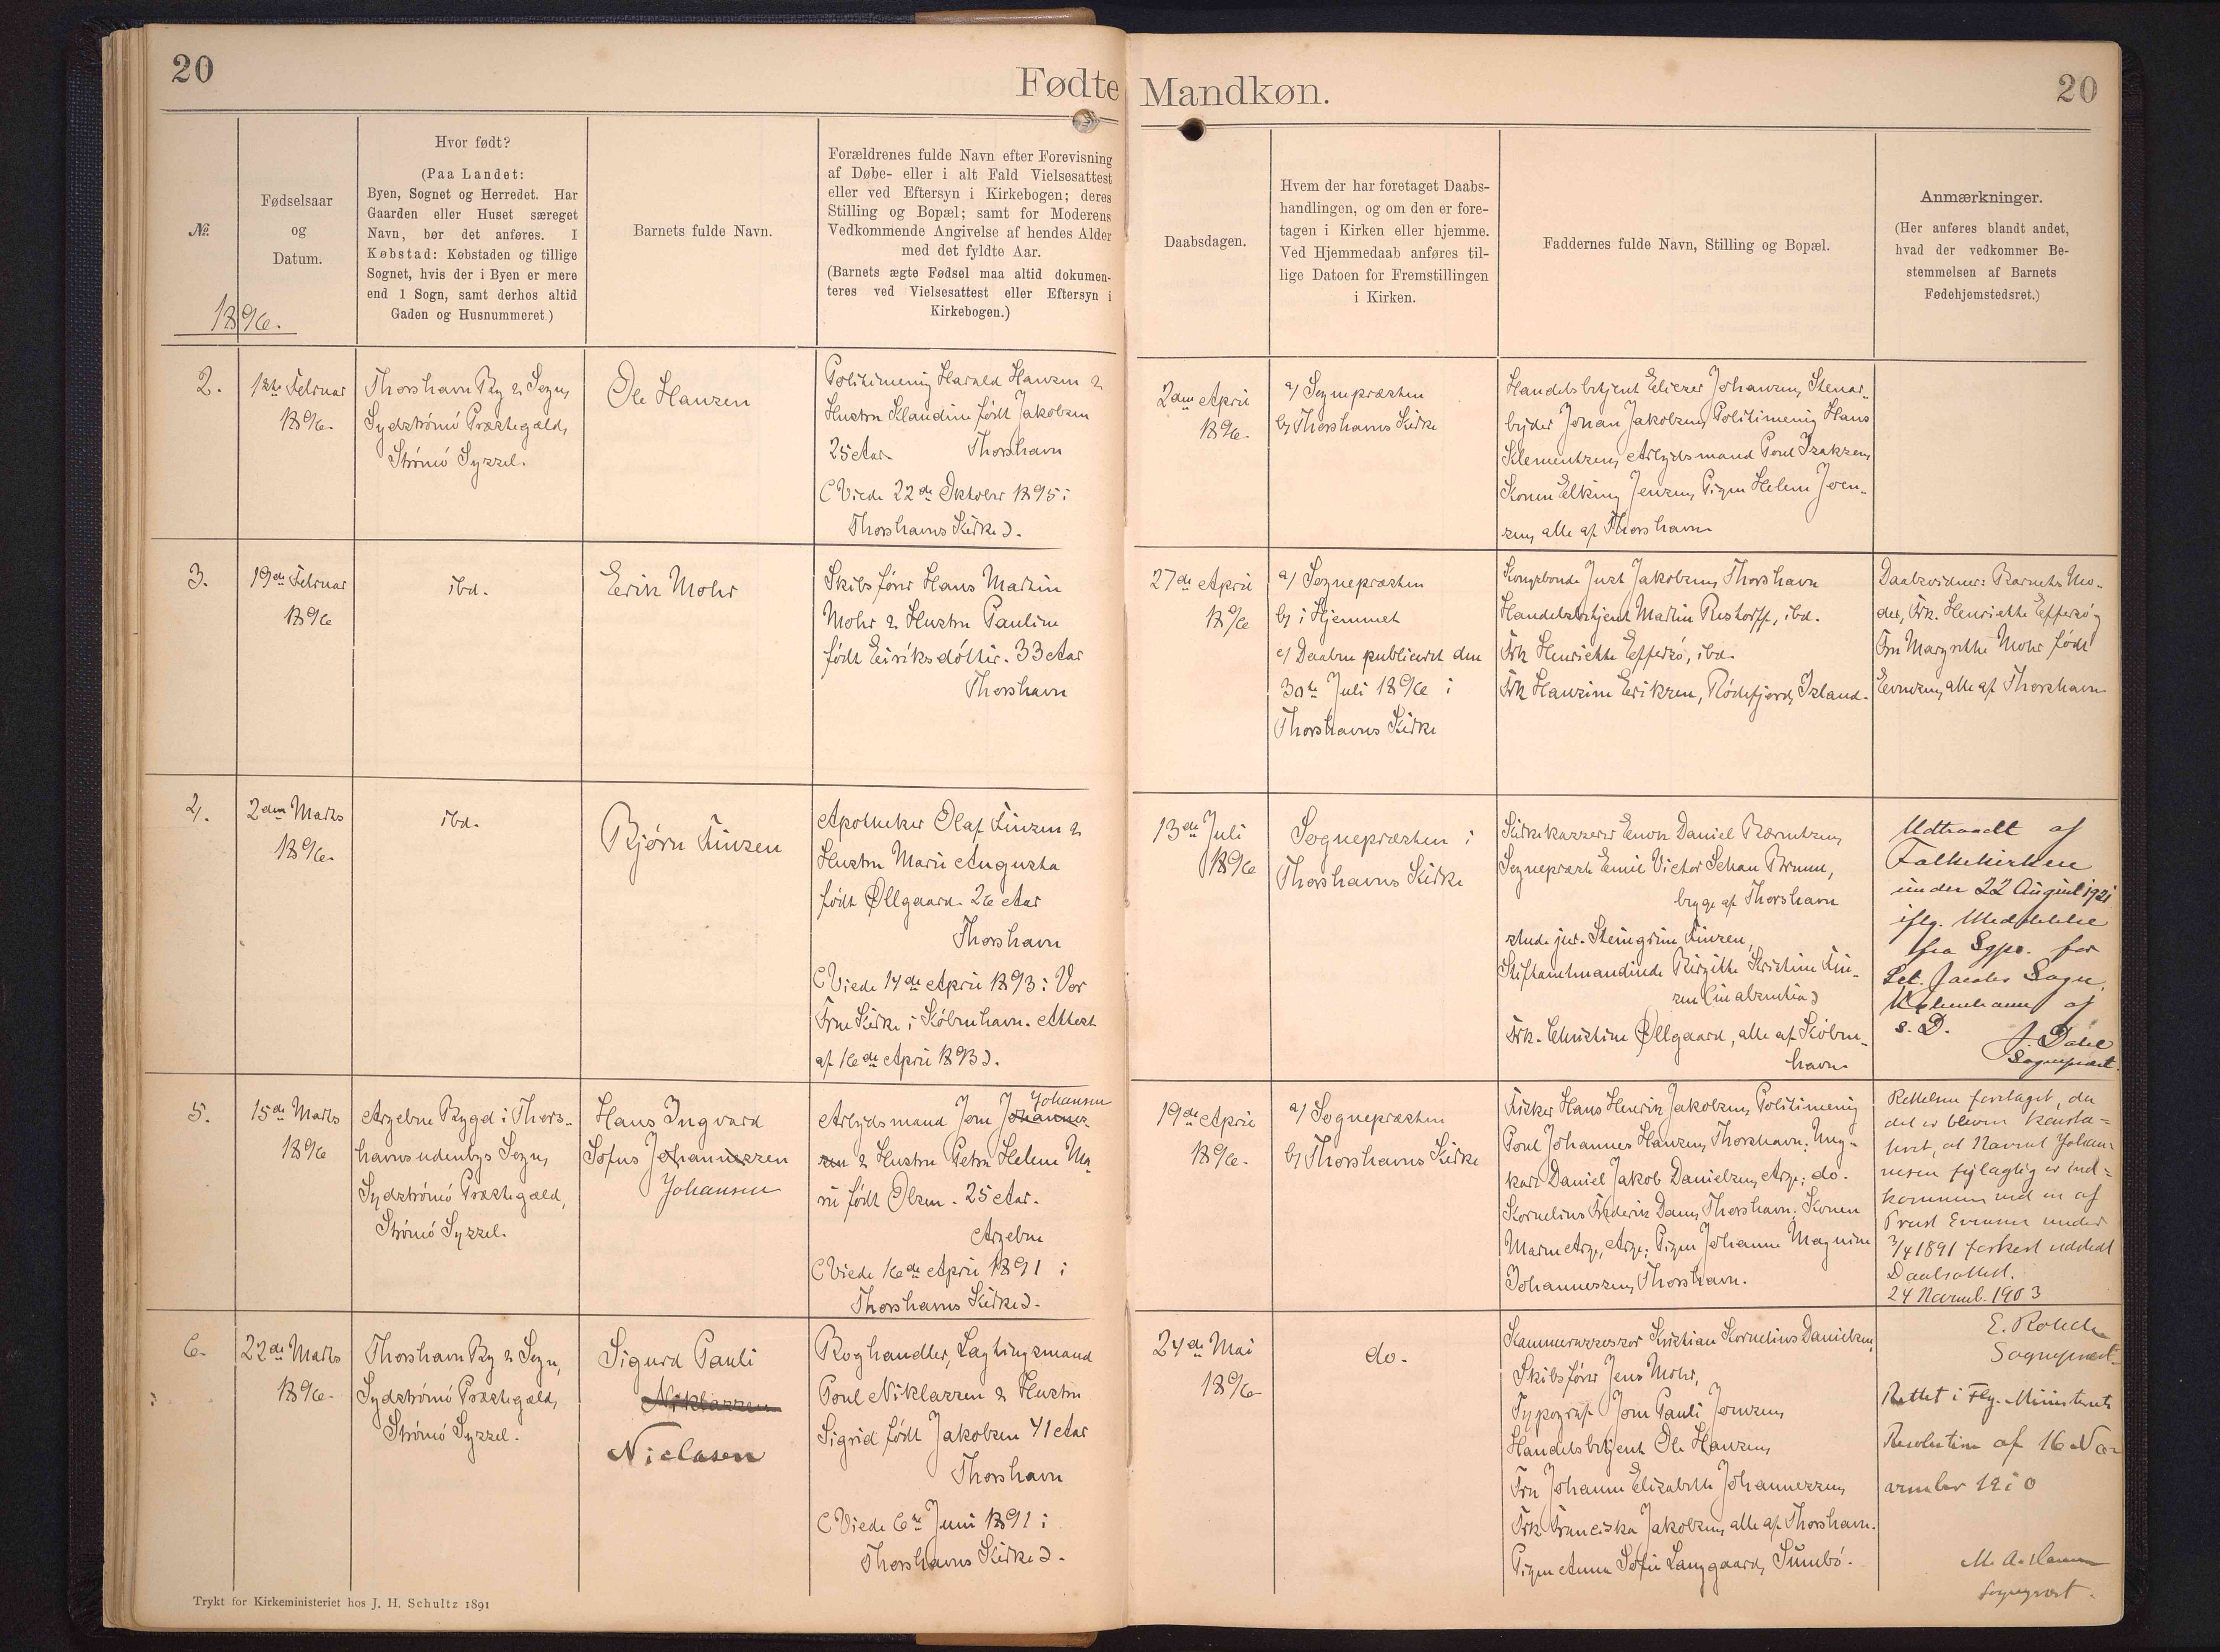 20
Fødte
Mandkøn.
20
№.
Fødselsaar
og
Datum.
1896.
Hvor født?
(Paa Landet:
Byen, Sognet og Herredet. Har
Gaarden eller Huset særeget
Navn, bør det anføres. I
Købstad: Købstaden og tillige
Sognet, hvis der i Byen er mere
end 1 Sogn, samt derhos altid
Gaden og Husnummeret)
Barnets fulde Navn.
Forældrenes fulde Navn efter Forevisning
af Døbe- eller i alt Fald Vielsesattest
eller ved Eftersyn i Kirkebogen; deres
Stilling og Bopæl; samt for Moderens
Vedkommende Angivelse af hendes Alder
med det fyldte Aar.
(Barnets ægte Fødsel maa altid dokumen-
teres ved Vielsesattest eller Eftersyn i
Kirkebogen.)
Daabsdagen.
Hvem der har foretaget Daabs-
handlingen, og om den er fore-
tagen i Kirken eller hjemme.
Ved Hjemmedaab anføres til-
lige Datoen for Fremstillingen
i Kirken.
Faddernes fulde Navn, Stilling og Bopæl.
Anmærkninger.
(Her anføres blandt andet,
hvad der vedkommer Be-
stemmelsen af Barnets
Fødehjemstedsret.)
2.
1ste Februar
1896.
Thorshavn By & Sogn,
Sydstrømø Præstegæld,
Strømø Syssel.
Ole Hansen
Politimenig Harald Hansen &
Hustru Klaudine født Jakobsen
25 Aar. Thorshavn
(Viede 22de Oktober 1895 i
Thorshavns Kirke).
2den April
1896.
a/ Sognepræsten
b/ Thorshavns Kirke
Handelsbetjent Eliezer Johansen, Stenar-
bejder Johan Jakobsen, Politimenig Hans
Klementsen, Arbejdsmand Poul Isaksen,
Konen Elking Jensen, Pigen Helene Joen-
sen, alle af Thorshavn
3.
19de Februar
1896
ibd.
Erik Mohr
Skibsfører Hans Martin
Mohr & Hustru Pauline
født Eiriksdóttir. 33 Aar
Thorshavn
27de April
1896
a/ Sognepræsten
b/ i Hjemmet
c/ Daaben publiceret den
30te Juli 1896 i
Thorshavns Kirke
Kongsbonde Just Jakobsen, Thorshavn
Handelsbetjent Martin Restorff, ibd.
Frk Henriette Effersø, ibd.
Frk Hansine Eriksen, Rødefjord, Island.
Daabsvidner: Barnets Mo-
der, Frk. Henriette Effersø og
Fru Margrethe Mohr født
Evensen, alle af Thorshavn
4.
2den Marts
1896.
ibd.
Bjørn Finsen
Apotheker Olaf Finsen &
Hustru Marie Augusta
født Øllgaard. 26 Aar
Thorshavn
(Viede 14de April 1893 i Vor
Frue Kirke i København. Attest
af 16de April 1893).
13de Juli
1896
Sognepræsten i
Thorshavns Kirke
Kirkekasserer Enok Daniel Bærentsen,
Sognepræst Emil Victor Schau Bruun,
begge af Thorshavn
stud. jur. Steingrim Finsen,
Stiftamtmandinde Birgitte Kristine Fin-
sen (in absentia)
Frk. Christine Øllgaard, alle af Køben-
havn.
Udtraadt af
Folkekirken
under 22 August 1921
iflg. Meddelelse
fra Sgpr. for
Sct. Jacobs Sogn,
København af
s. D.
J. Dahl
Sognepræst.
5.
15de Marts
1896
Argebne Bygd i Thors-
havns udenbys Sogn,
Sydstrømø Præstegæld,
Strømø Syssel.
Hans Ingvard
Sofus Johannessen
Johansen
Johansen
Arbejdsmand Joen Johannes-
sen & Hustru Petra Helene Ma
rie født Olsen. 25 Aar.
Argebne
(Viede 16de April 1891 i
Thorshavns Kirke).
19de April
1896.
a/ Sognepræsten
b/ Thorshavns Kirke
Fisker Hans Henrik Jakobsen, Politimenig
Poul Johannes Hansen, Thorshavn; Ung-
karl Daniel Jakob Danielsen, Arge; do.
Kornelius Frederik Dam, Thorshavn. Konen
Maren Arge, Arge; Pigen Johanne Magnine
Johannessen, Thorshavn.
Rettelsen foretaget, da
det er bleven konsta-
teret, at Navnet Johan-
nesen fejlagtig er ind-
kommen ved en af
Provst Evensen under
3/4 1891 forkert udstedt
Daabsattest.
24 Novemb. 1903
E.
Sognepræst.
6.
22de Marts
1896.
Thorshavn By & Sogn,
Sydstrømø Præstegæld,
Strømø Syssel.
Sigurd Pauli
Niklassen
Niclasen
Boghandler, Lagtingsmand
Poul Niklassen & Hustru
Sigrid født Jakobsen 41 Aar
Thorshavn
(Viede 6te Juni 1891 i
Thorshavns Kirke).
24de Mai
1896
do.
Kammerassessor Kristian Kornelius Danielsen,
Skibsfører Jens Mohr,
Typograf Joen Pauli Joensen,
Handelsbetjent Ole Hansen,
Fru Johanne Elisabeth Johannessen,
Frk Franciska Jakobsen, alle af Thorshavn.
Pigen Anna Sofie Langgaard, Sumbø.
Rettet i Flg. Ministeriets
Resolution af 16 No-
vember 1910
Sognepræst.
Trykt for Kirkeministeriet hos J. H. Schultz 1891